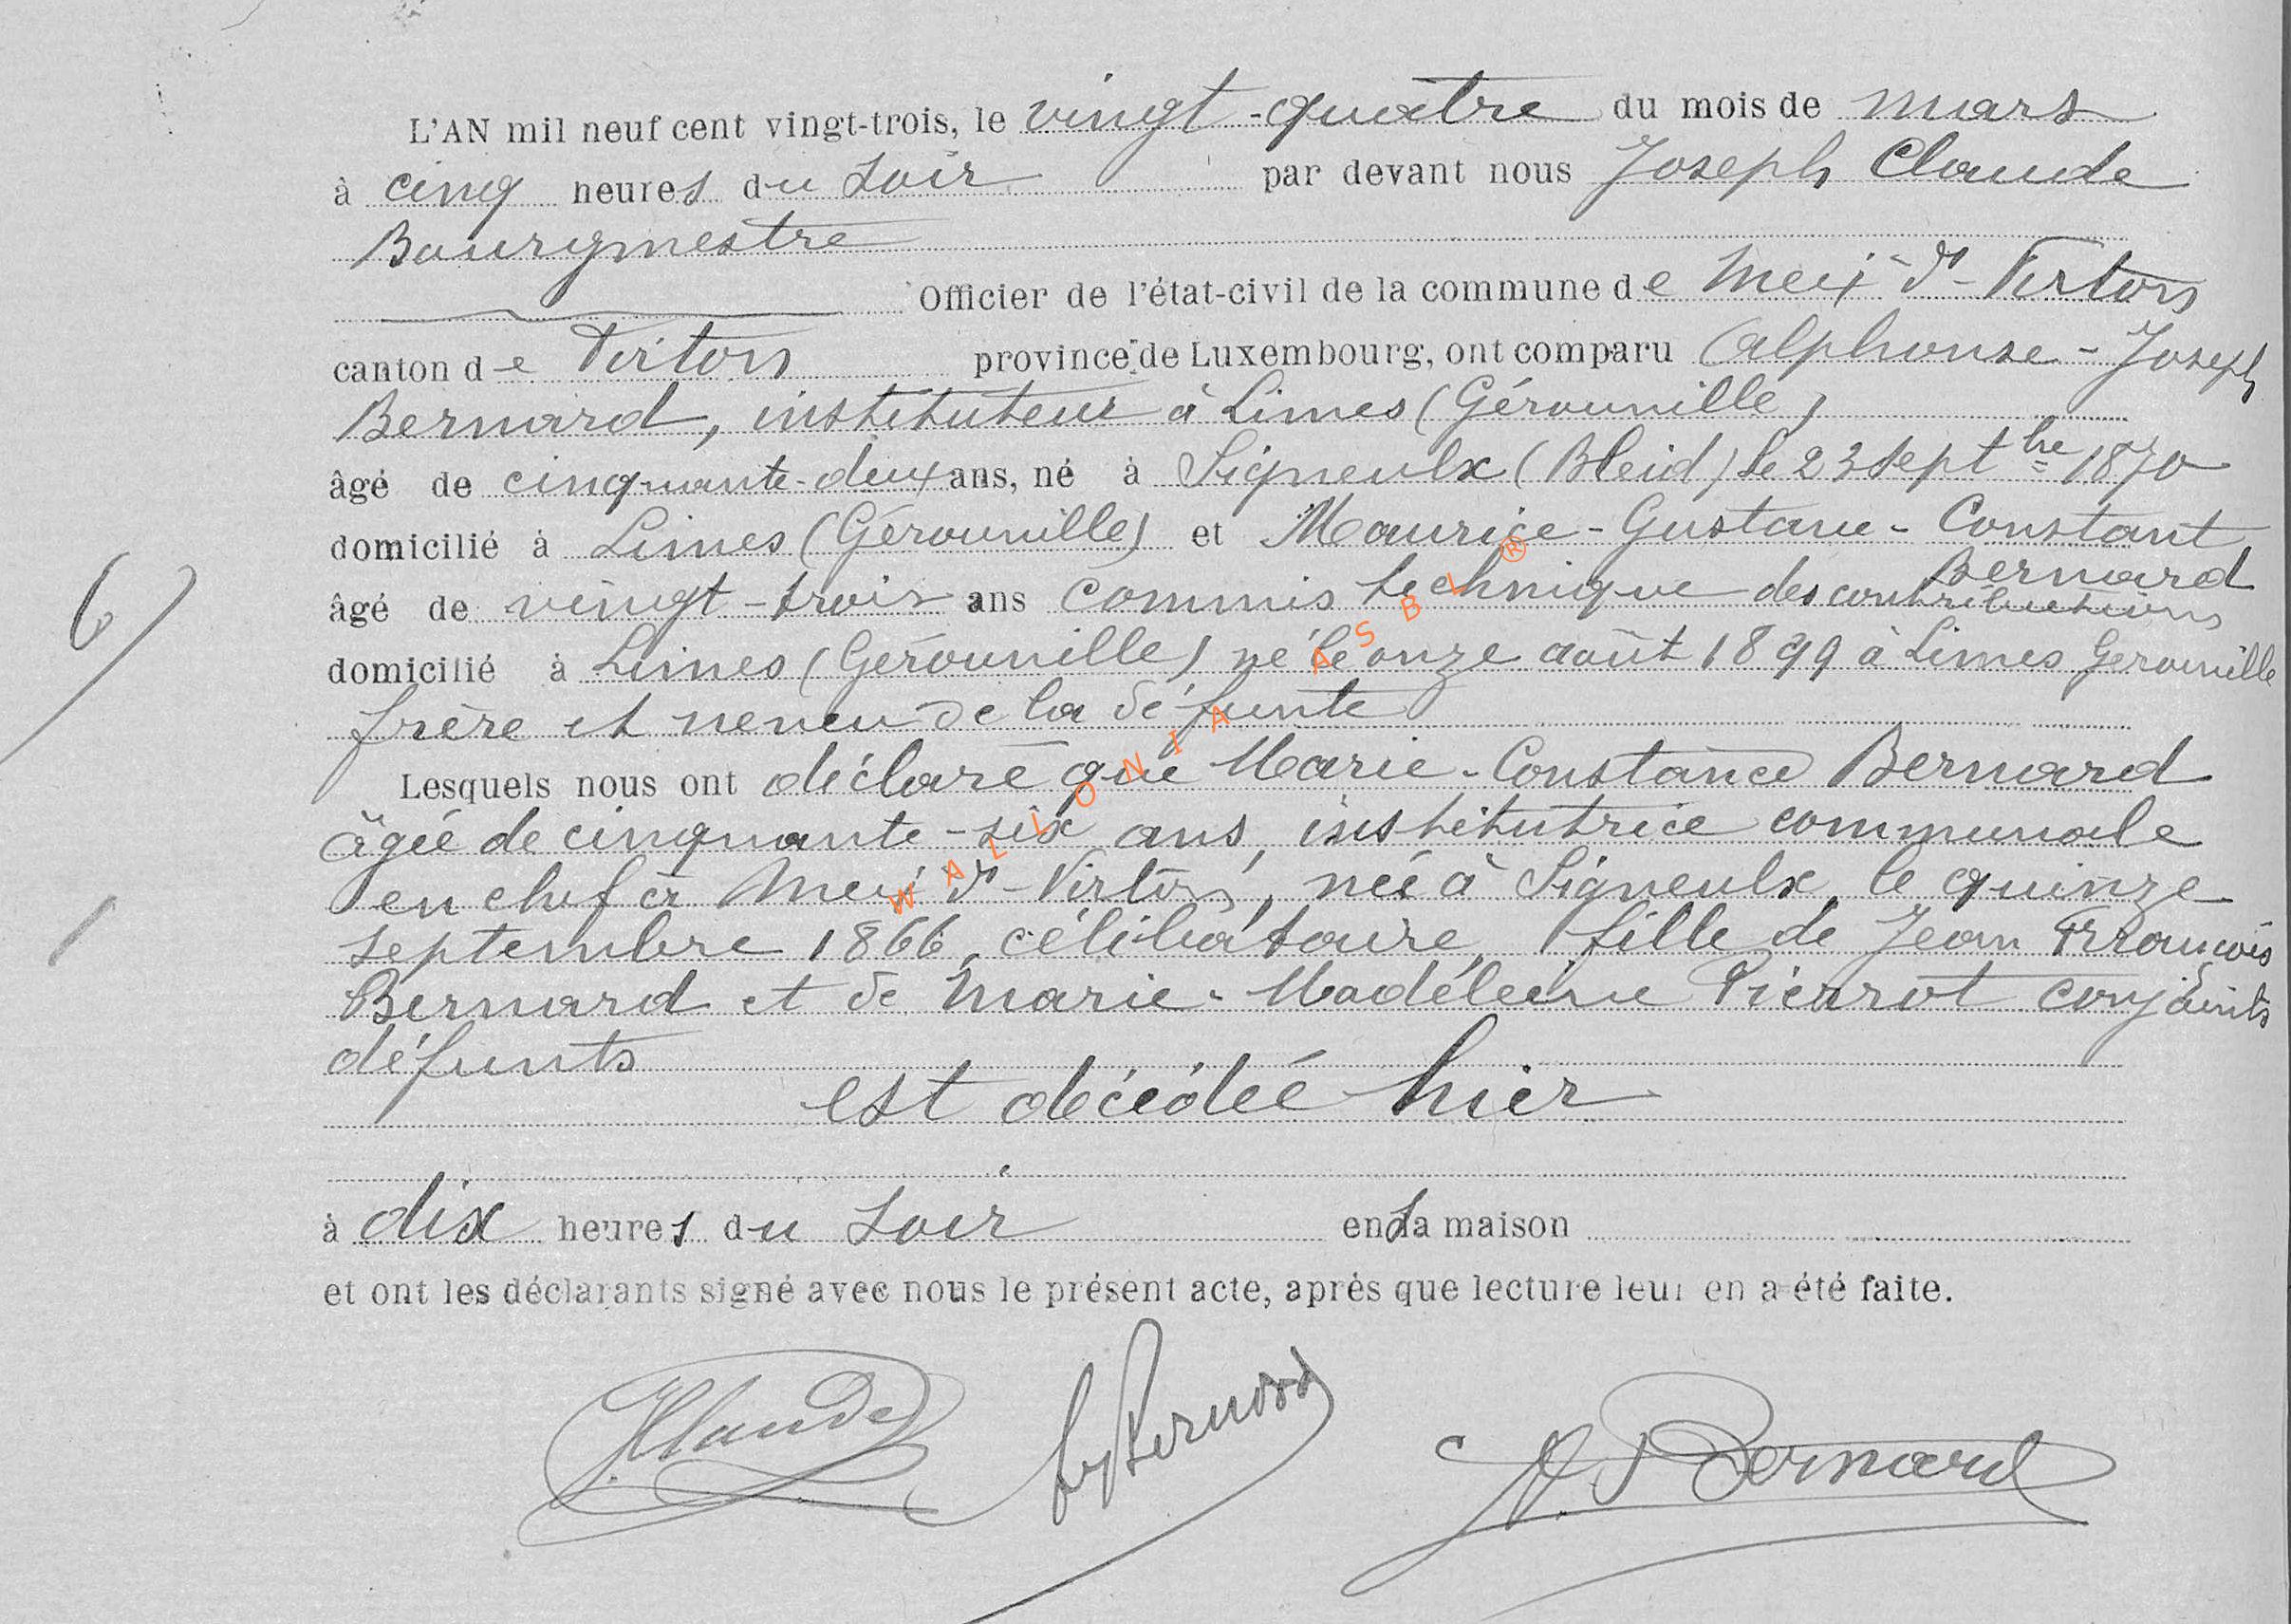 L'AN mil neuf cent vingt-trois, le vingt-quatre du mois de mars
à cinq heures du soir par devant nous Joseph Claude
Bourgmestre
Officier de l'état-civil de la commune de Meix dt-Virton
canton de Virton province de Luxembourg, ont comparu Alphonse-Joseph
Bernard, instituteur à Limes (Gérouville)
âgé de cinquante-deux ans, né à Signeulx (Bleid) le 23 septbre 1870
domicilié à Limes (Gérouville) et Maurice-Gustave-Constant
Bernard
âgé de vingt-trois ans commis technique des contributions
domicilié à Limes (Gérouville) né le onze août 1899 à Limes Gérouville
frère et neveu de la défunte
Lesquels nous ont déclaré que Marie-Constance Bernard
âgée de cinquante-six ans, institutrice communale
en chef à Meix dt-Virton, née à Signeulx, le quinze
septembre 1866, célibataire, fille de Jean François
Bernard et de Marie-Madéleine Pierrot conjoints
défunts
est décédée hier
à dix heures du soir en sa maison
et ont les déclarants signé avec nous le présent acte, après que lecture leur en a été faite.
JClaude Bernard A. Bernard
6
1
WALLONIA ASBL ®